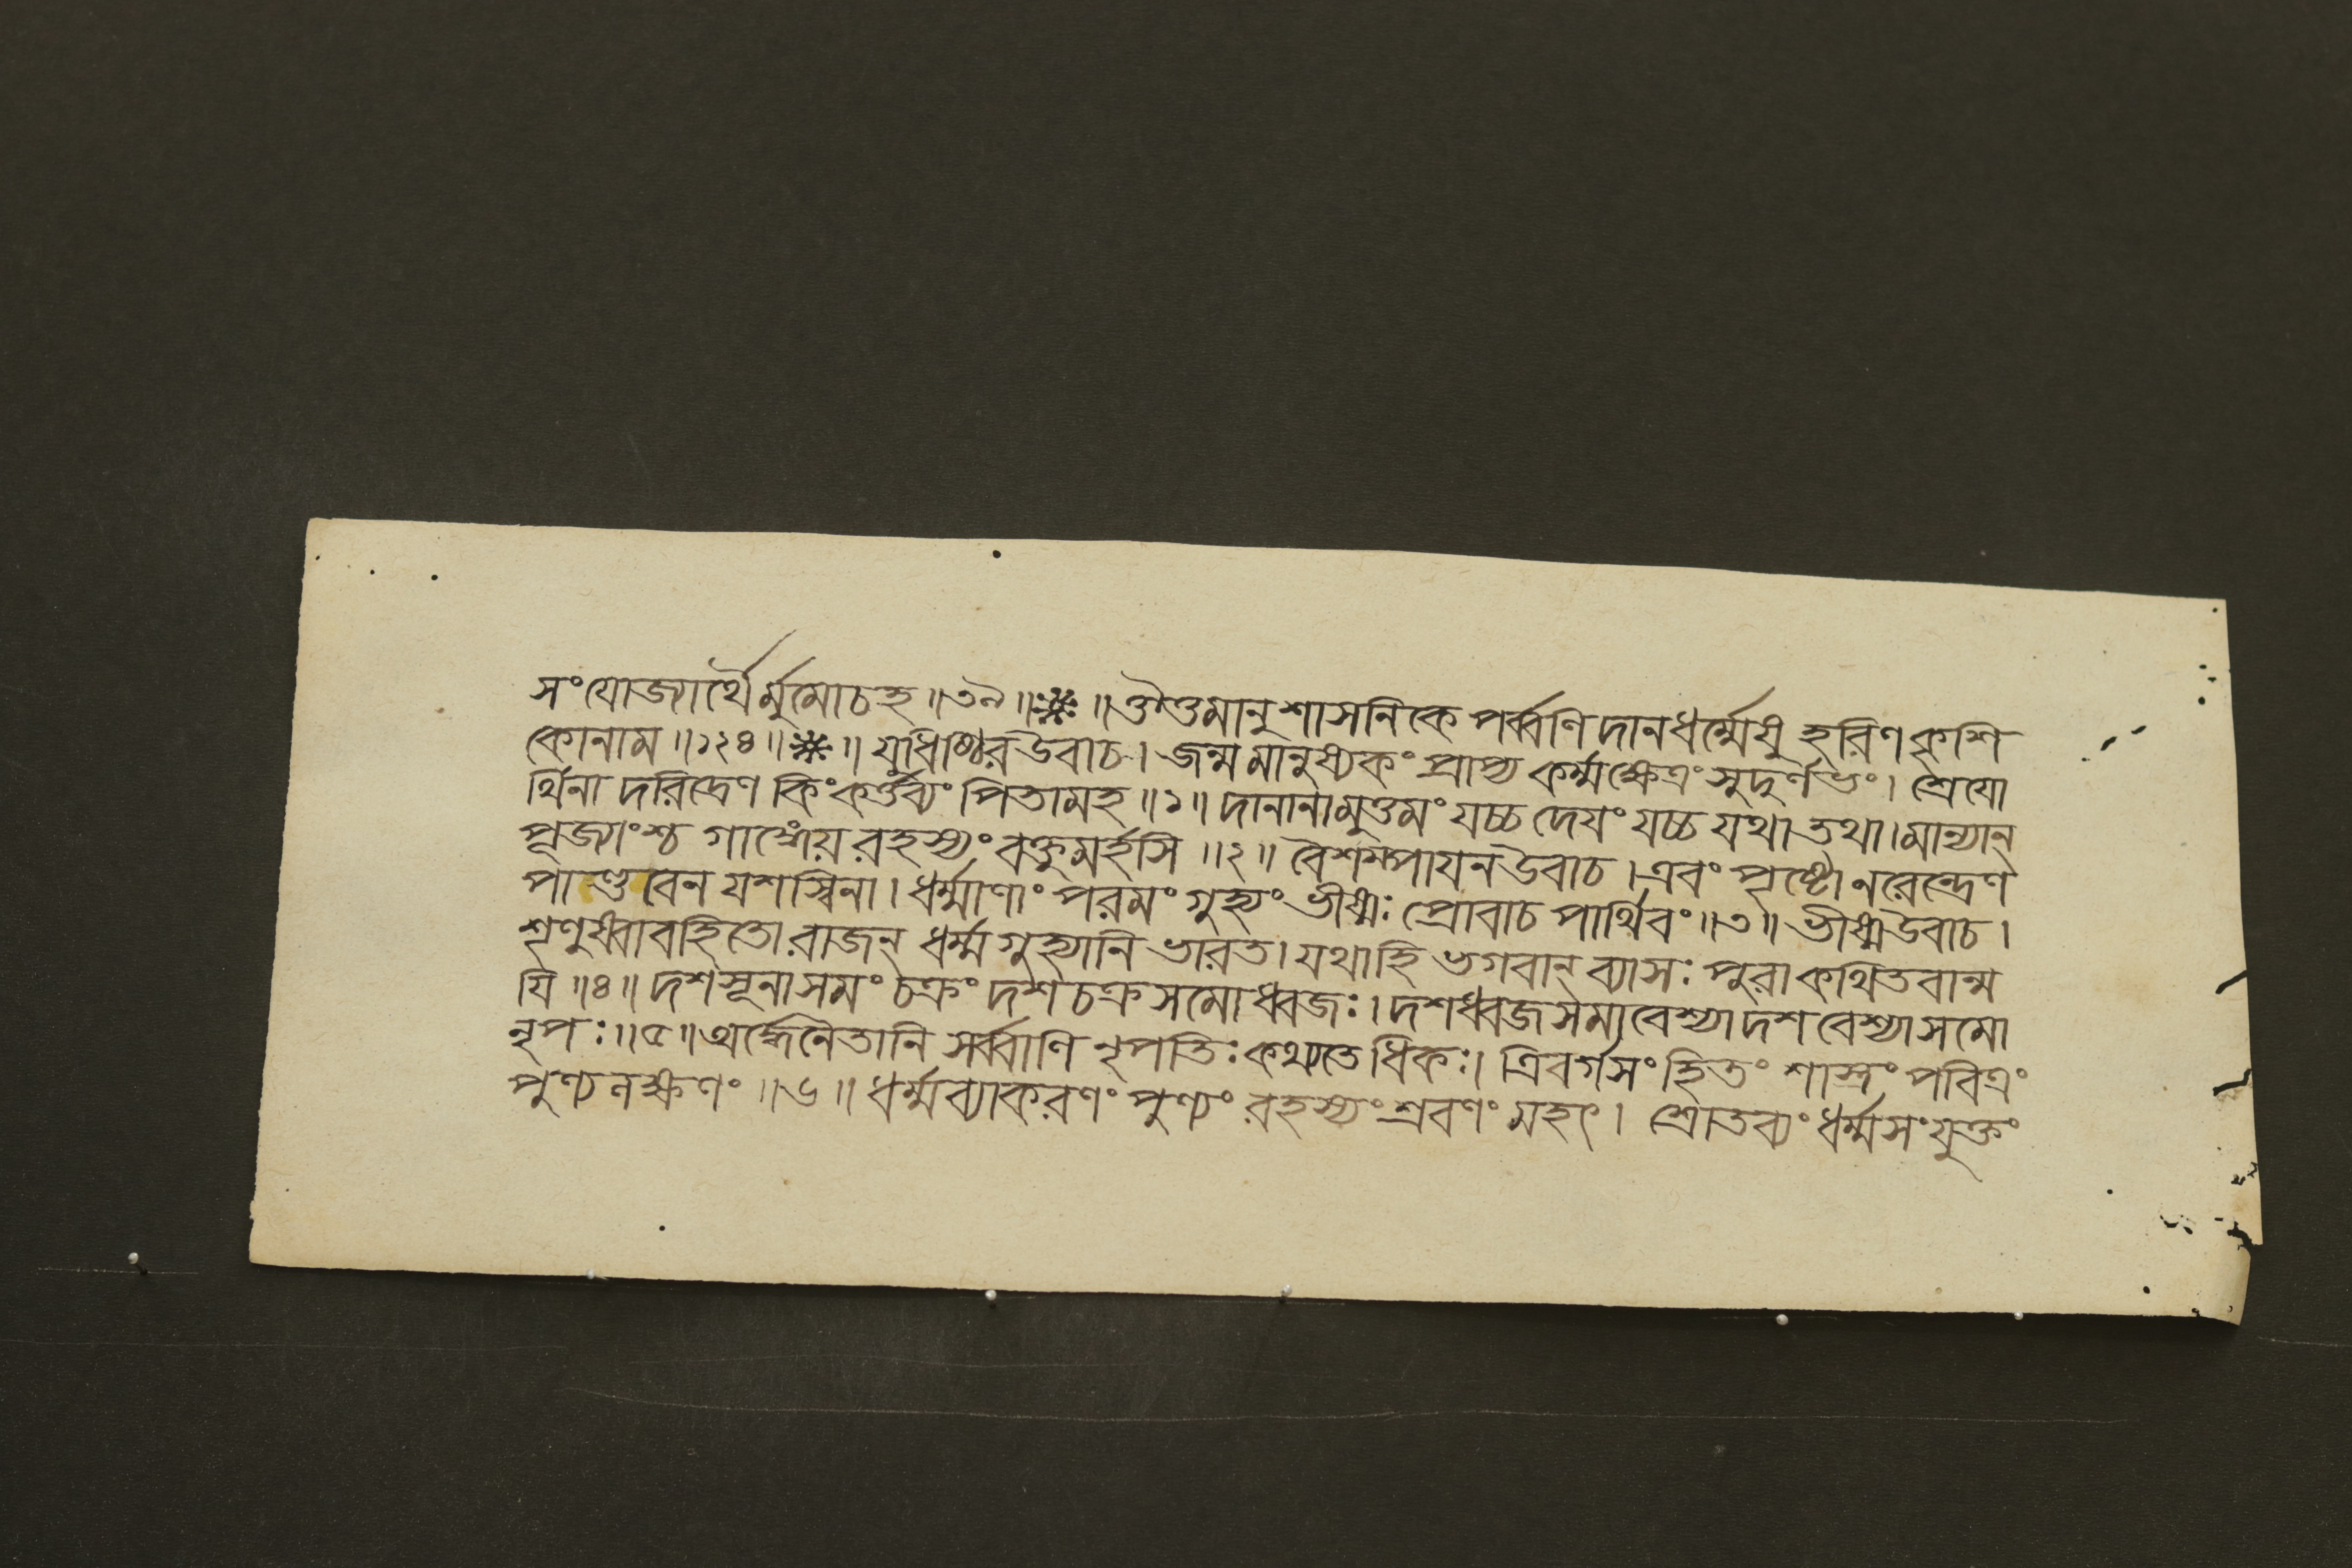 সংযোজ্যার্থৈর্মুমোচহ॥৩৯॥❊॥ ঔত্তমানুশাসনিকে পর্ব্বণি দানধর্ম্মেষু হরিণকৃশি
কোনাম॥১২৪॥❊॥ যুধিষ্ঠিরউবাচ। জন্ম মানুষ্যকং প্রাপ্য কর্ম্মক্ষেত্রং সুদুর্ণভং। শ্রেযো
র্থিনা দরিদ্রেণ কিংকর্ত্তব্যং পিতামহ॥১॥ দানানামুত্তমং যচ্চ দেযং যচ্চ যথা তথা।মান্যান্
পূজ্যাংশ্চ গাঙ্গেয় রহস্যং বক্তুমর্হসি॥২॥ বৈশম্পাযনউবাচ।এবং পৃষ্টো নরেন্দ্রেণ
পাণ্ডবেন যশস্বিনা। ধর্ম্মাণাং পরমং গুহ্যং ভীষ্মঃ প্রোবাচ পার্থিবং॥৩॥ ভীষ্মউবাচ।
শৃণুষ্বাবহিতো রাজন্ ধর্ম্মগুহ্যানি ভারত। যথাহি ভগবান্ ব্যাসঃ পুরা কথিতবান্ম
যি॥৪॥ দশসূনাসমং চক্রং দশচক্রসমোধ্বজঃ।দশধ্বজসমাবেশ্যাদশবেশ্যাসমো
নৃপঃ॥৫॥অর্দ্ধেনৈতানি সর্ব্বাণি নৃপতিঃ কথ্যতেধিকঃ। ত্রিবর্গসংহিতং শাস্ত্রং পবিত্রং
পুণ্যনক্ষণং॥৬॥ ধর্ম্মব্যাকরণং পুণ্যং রহস্যং শ্রবণং মহৎ। শ্রোতব্যং ধর্ম্মসংযুক্তং